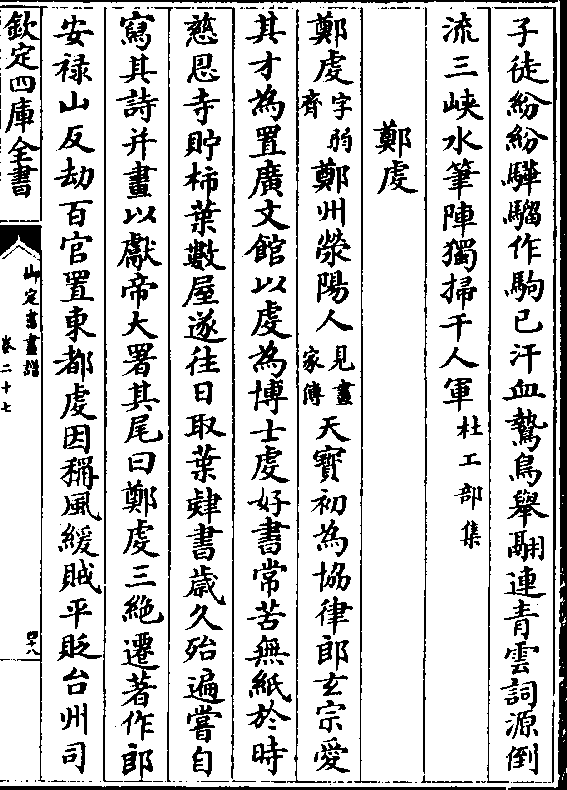 子徒紛紛驊騮作駒已汗血鷙鳥舉翮連青雲詞源倒
流三峽水筆陣獨掃千人軍杜工部集
鄭虔
鄭虔字弱齊鄭州滎陽人見畫家傳天寶初為協律郎玄宗愛
其才為置廣文館以虔為博士虔好書常苦無紙於時
慈恩寺貯柿葉數屋遂往日取葉肄書歲久殆遍嘗自
寫其詩并畫以獻帝大署其尾曰鄭虔三絶遷著作郎
安禄山反劫百官置東都虔因稱風緩賊平貶台州司
欽定四庫全書
御定書畫譜
卷二十七
四十八